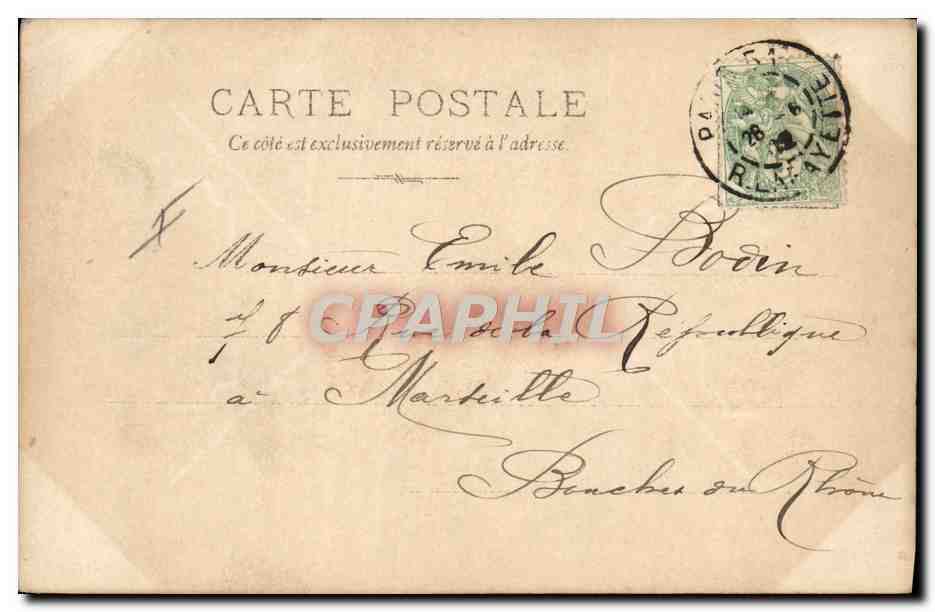 CARTE POSTALE
Ce côté est exclusivement réservé à l'adresse.
R. LAFAYETTE
28
Monsieur Emile Bodin
8 Rue de la République
à Marseille
Bouches du Rhône
CPAPHIL